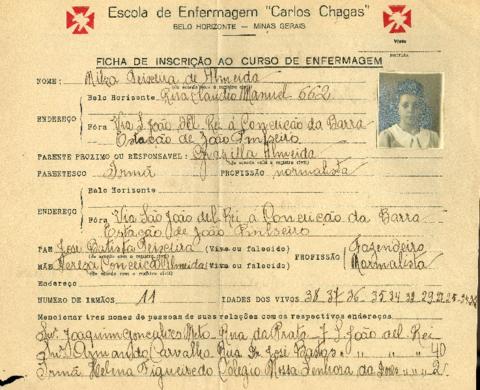 Escola de Enfermagem "Carlos Chagas"
BELO HORIZONTE — MINAS GERAIS
Visto
FICHA DE INSCRIÇÃO AO CURSO DE ENFERMAGEM
NOME: Milza Teixeira de Almeida
(de acordo com o registro civil)
Belo Horizonte Rua Claudio Manuel 662
ENDEREÇO
Fóra Via S. João del Rei á Conceição da Barra
Estação de João Pinheiro
PARENTE PROXIMO OU RESPONSAVEL: Almeida
(de acordo com o registro civil)
PARENTESCO Irmã PROFISSÃO normalista
Belo Horizonte
ENDEREÇO:
Fóra Via São João del Rei á Conceição da Barra
Estação de João Pinheiro
PAI José Batista Teixeira (Vivo ou falecido) Fazendeiro
(de acordo com o registro civil)
PROFISSÃO
MÃE Tereza Conceição Almeida (Viva ou falecida) Normalista
Endereço
NUMERO DE IRMÃOS 11 IDADES DOS VIVOS 38, 37, 36, 35, 34, 32, 29, 27
Mencionar três nomes de pessoas de suas relações com os respectivos endereços.
Snr Joaquim Gonçalves Neto - Rua da Prata - S. João del Rei
Carvalho Rua Dr José Bastos " " " 40
Irmã Helena Figueiredo Colegio Nossa Senhora das Dores " " " 2